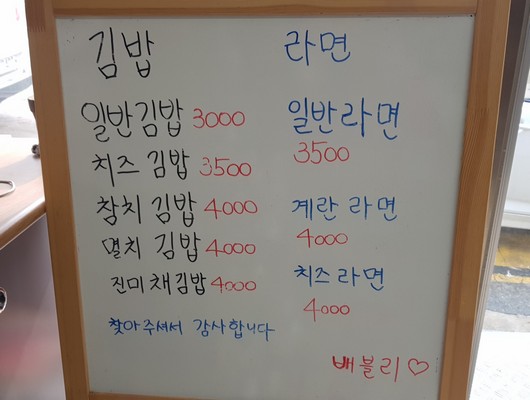 김밥
일반김밥 3000
치즈 김밥 3500
참치 김밥 4000
멸치 김밥 4000
진미채김밥 4000
찾아주셔서 감사합니다
라면
일반라면
3500
계란 라면
4000
치즈라면
4000
배블리♡